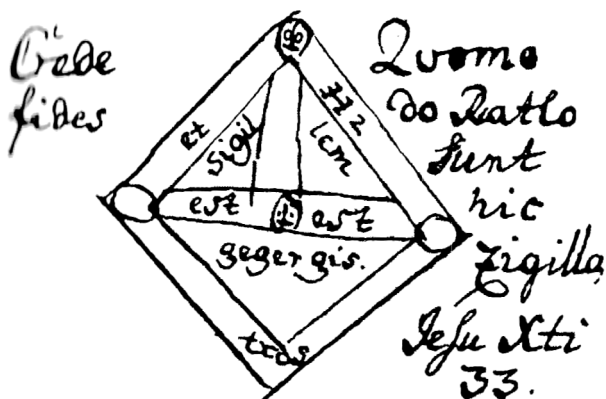 Crede
fides
et
sigil
772
lcm
est
est
gegergis.
Quomo
do Ratlo
sunt
hic
zigilla
Jesu Xti
33.